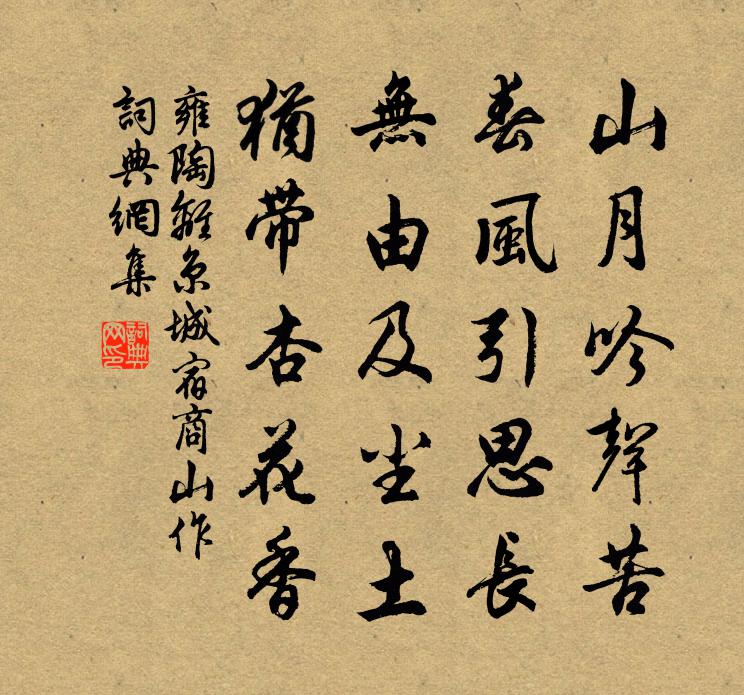 山月吟聲苦
春風引思長
無由及尘土
猶帶杏花香
雍陶離京城宿商山作
詞典網集
詞典網印